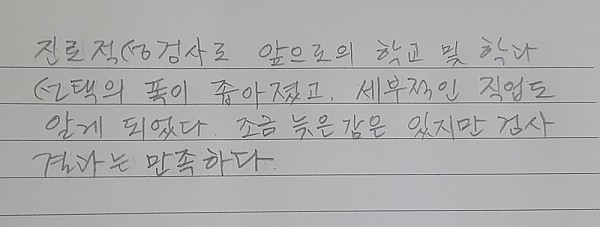 진로적성검사로 앞으로의 학교 및 학과
선택의 폭이 좁아졌고, 세부적인 직업도
알게 되었다. 조금 늦은감은 있지만 검사
결과는 만족하다.